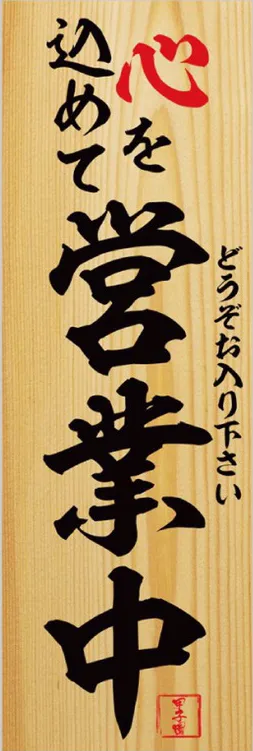 心を
込めて
営業中
どうぞお入り下さい